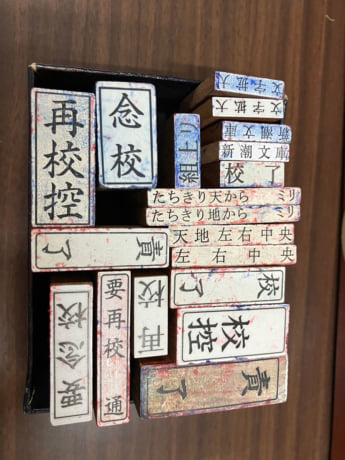 再校控
念校
文字拡大
文字拡大
新潮文庫
新潮文庫
校了
たちきり天から ミリ
たちきり地から ミリ
責了
天地左右中央
左右中央
要念校
要再校 通
再校
校了
校控
責了